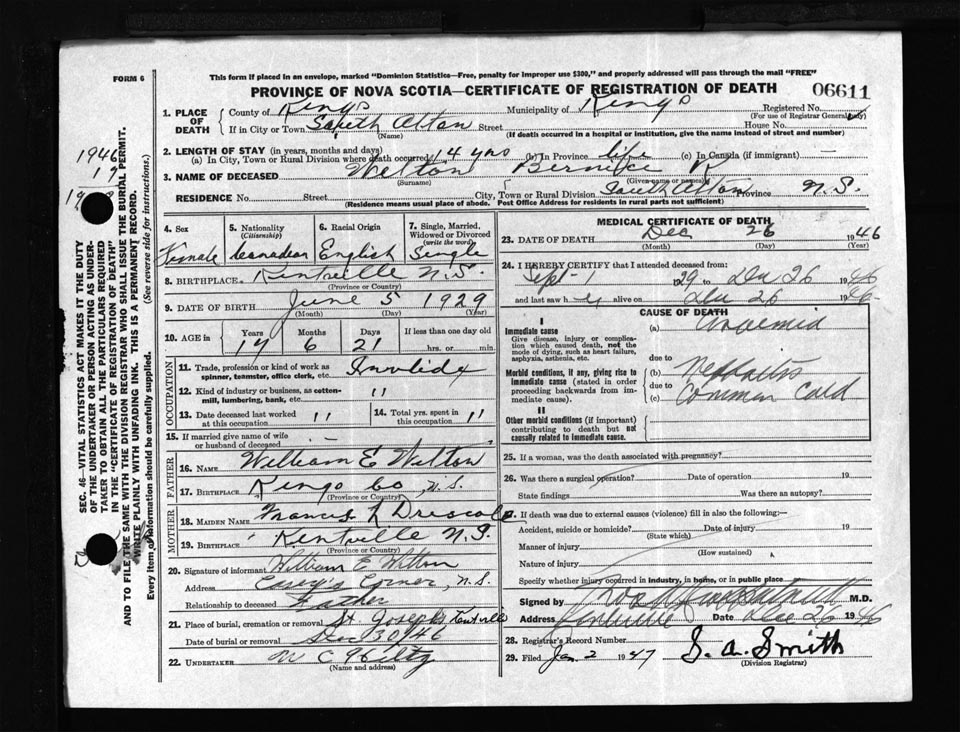 FORM 6
This form if placed in an envelope, marked "Dominion Statistics—Free, penalty for improper use $300," and properly addressed will pass through the mail "FREE"
PROVINCE OF NOVA SCOTIA—CERTIFICATE OF REGISTRATION OF DEATH
06611
1. PLACE OF DEATH
County of Kings Municipality of Kings Registered No.
(For use of Registrar General)
If in City or Town South Alton Street House No.
(Name) (If death occurred in a hospital or institution, give the name instead of street and number)
2. LENGTH OF STAY (in years, months and days)
(a) In City, Town or Rural Division where death occurred 14 yrs (b) In Province life (c) In Canada (if immigrant) —
3. NAME OF DECEASED Welton Bernice R
(Surname) (Given name or names)
RESIDENCE No. Street City, Town or Rural Division South Alton Province N.S.
(Residence means usual place of abode. Post Office Address for residents in rural parts not sufficient)
1946
17
19
SEC. 46—VITAL STATISTICS ACT MAKES IT THE DUTY
OF THE UNDERTAKER OR PERSON ACTING AS UNDER-
TAKER TO OBTAIN ALL THE PARTICULARS REQUIRED
IN THE "CERTIFICATE OF REGISTRATION OF DEATH"
AND TO FILE THE SAME WITH THE DIVISION REGISTRAR WHO SHALL ISSUE THE BURIAL PERMIT.
WRITE PLAINLY WITH UNFADING INK. THIS IS A PERMANENT RECORD.
Every item of information should be carefully supplied. (See reverse side for instructions.)
4. Sex 5. Nationality 6. Racial Origin 7. Single, Married,
(Citizenship) Widowed or Divorced
(write the word)
Female Canadian English Single
8. BIRTHPLACE Kentville N.S.
(Province or Country)
9. DATE OF BIRTH June 5 1929
(Month) (Day) (Year)
10. AGE in Years Months Days If less than one day old
17 6 21 hrs. or min.
OCCUPATION
11. Trade, profession or kind of work as
spinner, teamster, office clerk, etc.
12. Kind of industry or business, as cotton-
mill, lumbering, bank, etc. 11
13. Date deceased last worked 14. Total yrs. spent in
at this occupation 11 this occupation 11
15. If married give name of wife
or husband of deceased
FATHER
16. NAME William E Welton
17. BIRTHPLACE Kings Co, N.S.
(Province or Country)
MOTHER
18. MAIDEN NAME
19. BIRTHPLACE Kentville N.S.
(Province or Country)
20. Signature of informant William E Welton
Address Casey's Corner, N.S.
Relationship to deceased Father
21. Place of burial, cremation or removal St Joseph's Kentville
Date of burial or removal Dec 30/46
22. UNDERTAKER
(Name and address)
MEDICAL CERTIFICATE OF DEATH
23. DATE OF DEATH Dec 26 1946
(Month) (Day) (Year)
24. I HEREBY CERTIFY that I attended deceased from:
Sept-1 1929 to Dec 26 1946
and last saw her alive on Dec 26 1946
CAUSE OF DEATH
I
Immediate cause (a)
Give disease, injury or complica-
tion which caused death, not the
mode of dying, such as heart failure,
asphyxia, asthenia, etc.
due to
Morbid conditions, if any, giving rise to
immediate cause (stated in order
proceeding backwards from im-
mediate cause).
(b) Nephritis
due to
(c) Common Cold
II
Other morbid conditions (if important)
contributing to death but not
causally related to immediate cause.
25. If a woman, was the death associated with pregnancy?
26. Was there a surgical operation? Date of operation 19
State findings Was there an autopsy?
If death was due to external causes (violence) fill in also the following:—
Accident, suicide or homicide? Date of injury 19
(State which)
Manner of injury
(How sustained)
Nature of injury
Specify whether injury occurred in industry, in home, or in public place
Signed by M.D.
Address Kentville Date Dec 26 1946
28. Registrar's Record Number
29. Filed Jan 2 1947 S. A. Smith
(Division Registrar)